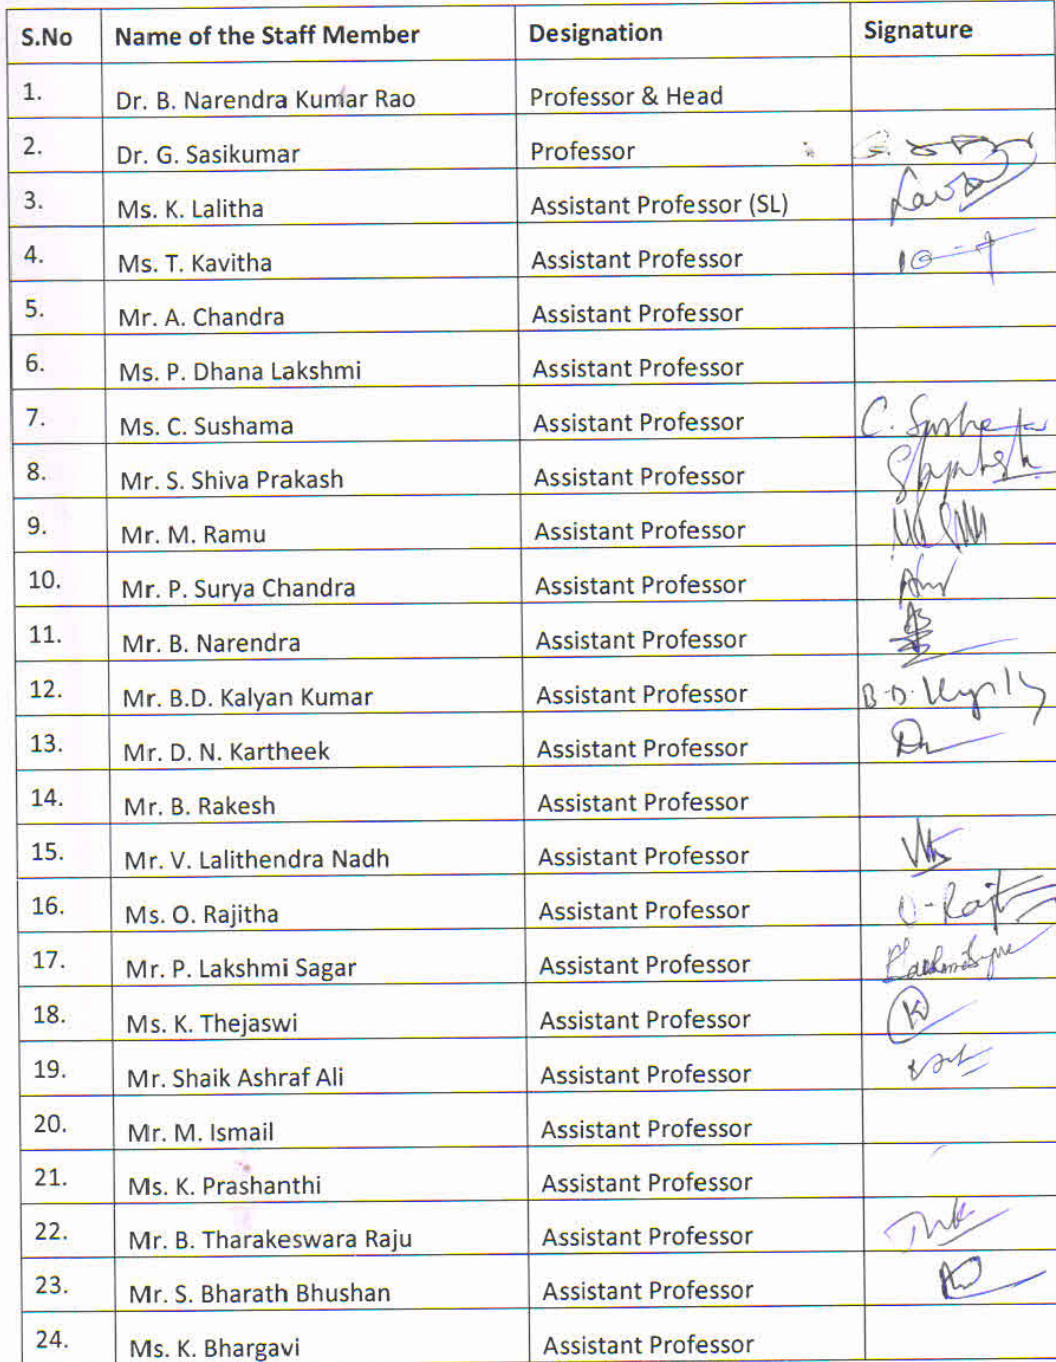 S.No Name of the Staff Member Designation Signature
1. Dr. B. Narendra Kumar Rao Professor & Head
2. Dr. G. Sasikumar Professor
3. Ms. K. Lalitha Assistant Professor (SL)
4. Ms. T. Kavitha Assistant Professor
5. Mr. A. Chandra Assistant Professor
6. Ms. P. Dhana Lakshmi Assistant Professor
7. Ms. C. Sushama Assistant Professor
8. Mr. S. Shiva Prakash Assistant Professor
9. Mr. M. Ramu Assistant Professor
10. Mr. P. Surya Chandra Assistant Professor
11. Mr. B. Narendra Assistant Professor
12. Mr. B.D. Kalyan Kumar Assistant Professor
13. Mr. D. N. Kartheek Assistant Professor
14. Mr. B. Rakesh Assistant Professor
15. Mr. V. Lalithendra Nadh Assistant Professor
16. Ms. O. Rajitha Assistant Professor
17. Mr. P. Lakshmi Sagar Assistant Professor
18. Ms. K. Thejaswi Assistant Professor
19. Mr. Shaik Ashraf Ali Assistant Professor
20. Mr. M. Ismail Assistant Professor
21. Ms. K. Prashanthi Assistant Professor
22. Mr. B. Tharakeswara Raju Assistant Professor
23. Mr. S. Bharath Bhushan Assistant Professor
24. Ms. K. Bhargavi Assistant Professor